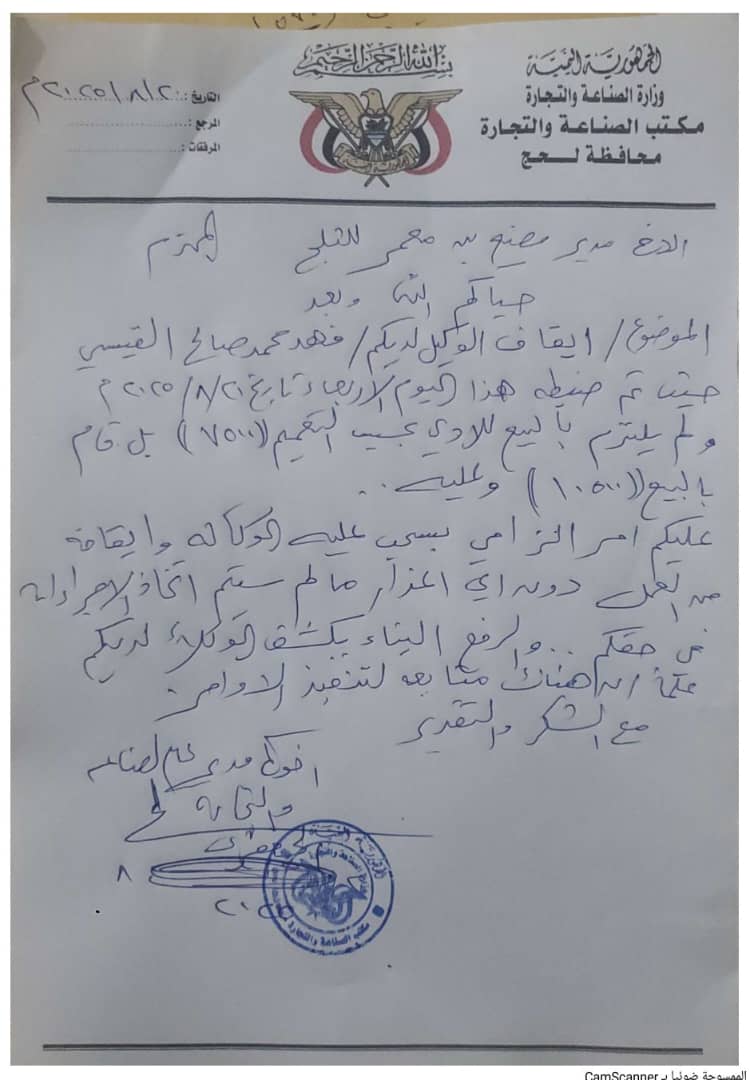 بسم الله الرحمن الرحيم
الجمهورية اليمنية
وزارة الصناعة والتجارة
مكتب الصناعة والتجارة
محافظة لحج
التاريخ : ٢٠٢٥/٨/٢٠م
المرجع :
المرفقات :
الاخ مدير مصنع بن معمر للثلج المحترم
حياكم الله وبعد
الموضوع/ ايقاف الوكيل لديكم/ فهد محمد صالح القيسي
حيث تم ضبطه هذا اليوم الاربعاء تاريخ ٢٠٢٥/٨/٢٠م
ولم يلتزم بالبيع للادي بحسب التعميم (٧٥٠٠) بل قام
بالبيع (١٠٥٠٠) وعليه..
عليكم امر الزامي بسحب عليه الوكاله وايقافه
من العمل دون اي اعذار مالم سيتم اتخاذ الاجراءات
في حقكم .. والرفع الينا بكشف الوكلاء لديكم
علماً ان هناك متابعه لتنفيذ الاوامر.
مع الشكر والتقدير
اخوكم مدير عام الصناعه
والتجارة
٨
٢٠٢٥
مكتب الصناعة والتجارة
الممسوحة ضوئيا بـ CamScanner